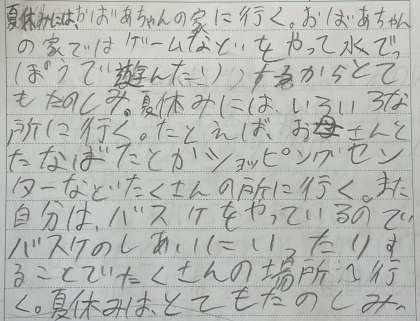 夏休みには、おばあちゃんの家に行く。おばあちゃん
の家ではゲームなどいをやって水でっ
ぽうで遊んだり、するからとて
もたのしみ。夏休みには、いろいろな
所に行く。たとえば、お母さんと
たなばただとかショッピングセン
ターなどいたくさんの所に行く。また
自分は、バスケをやっているので
バスケのしあいにいったりす
ることでいたくさんの場所に行
く。夏休みは、とてもたのしみ。